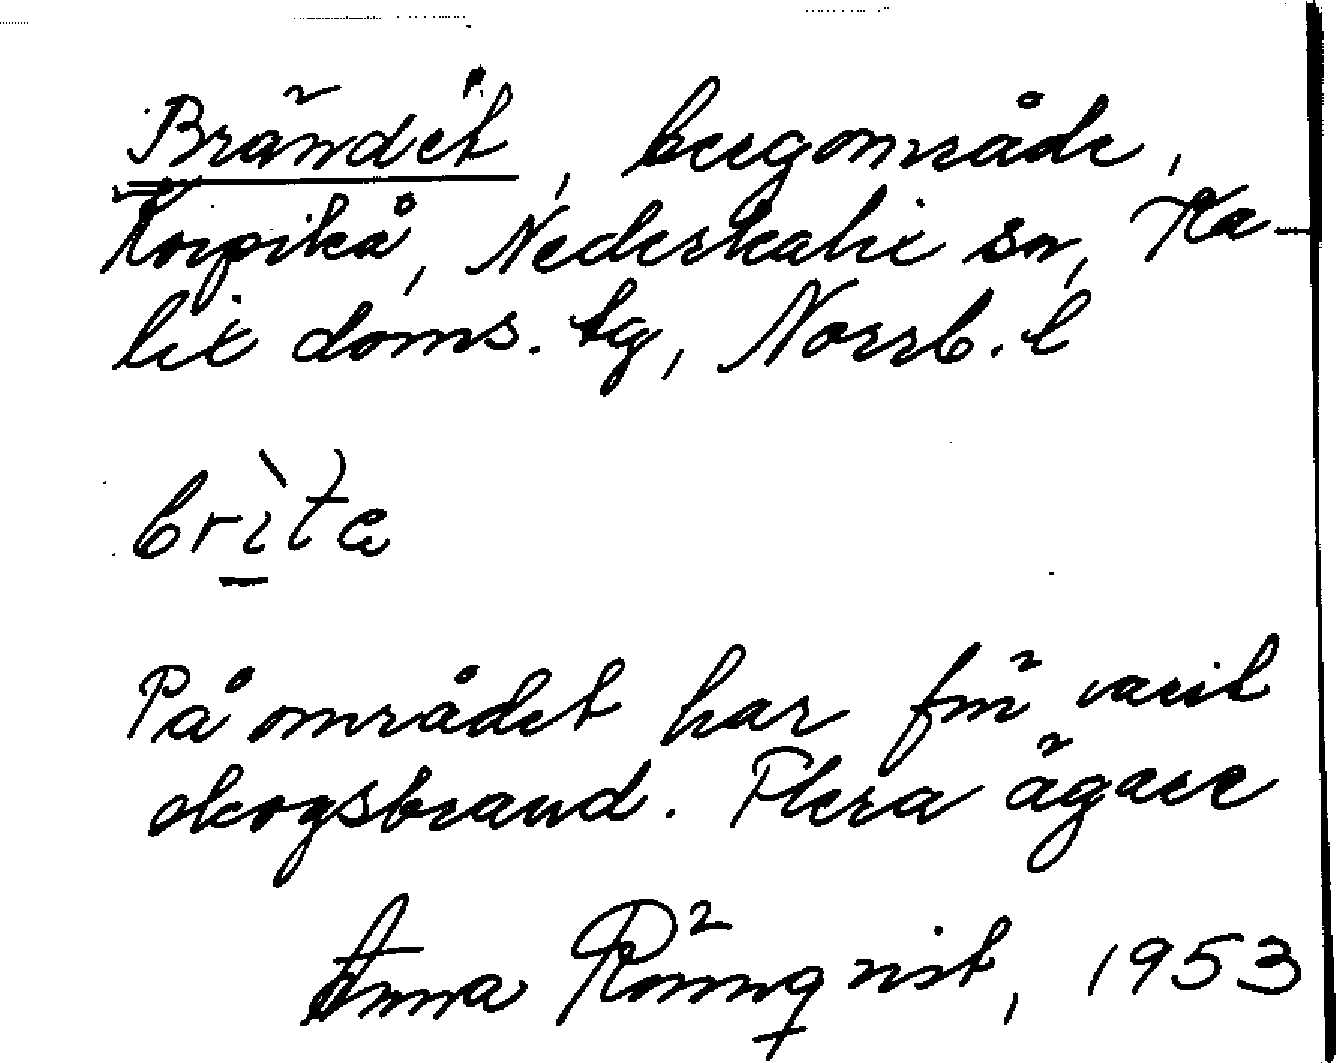 Brändet, bergområde,
Korpikå, Nederkalix sn, Ka-
lix doms. tg, Norrb. l
På området har förr varit
skogsbrand. Flera ägare
Anna Rönnqvist, 1953